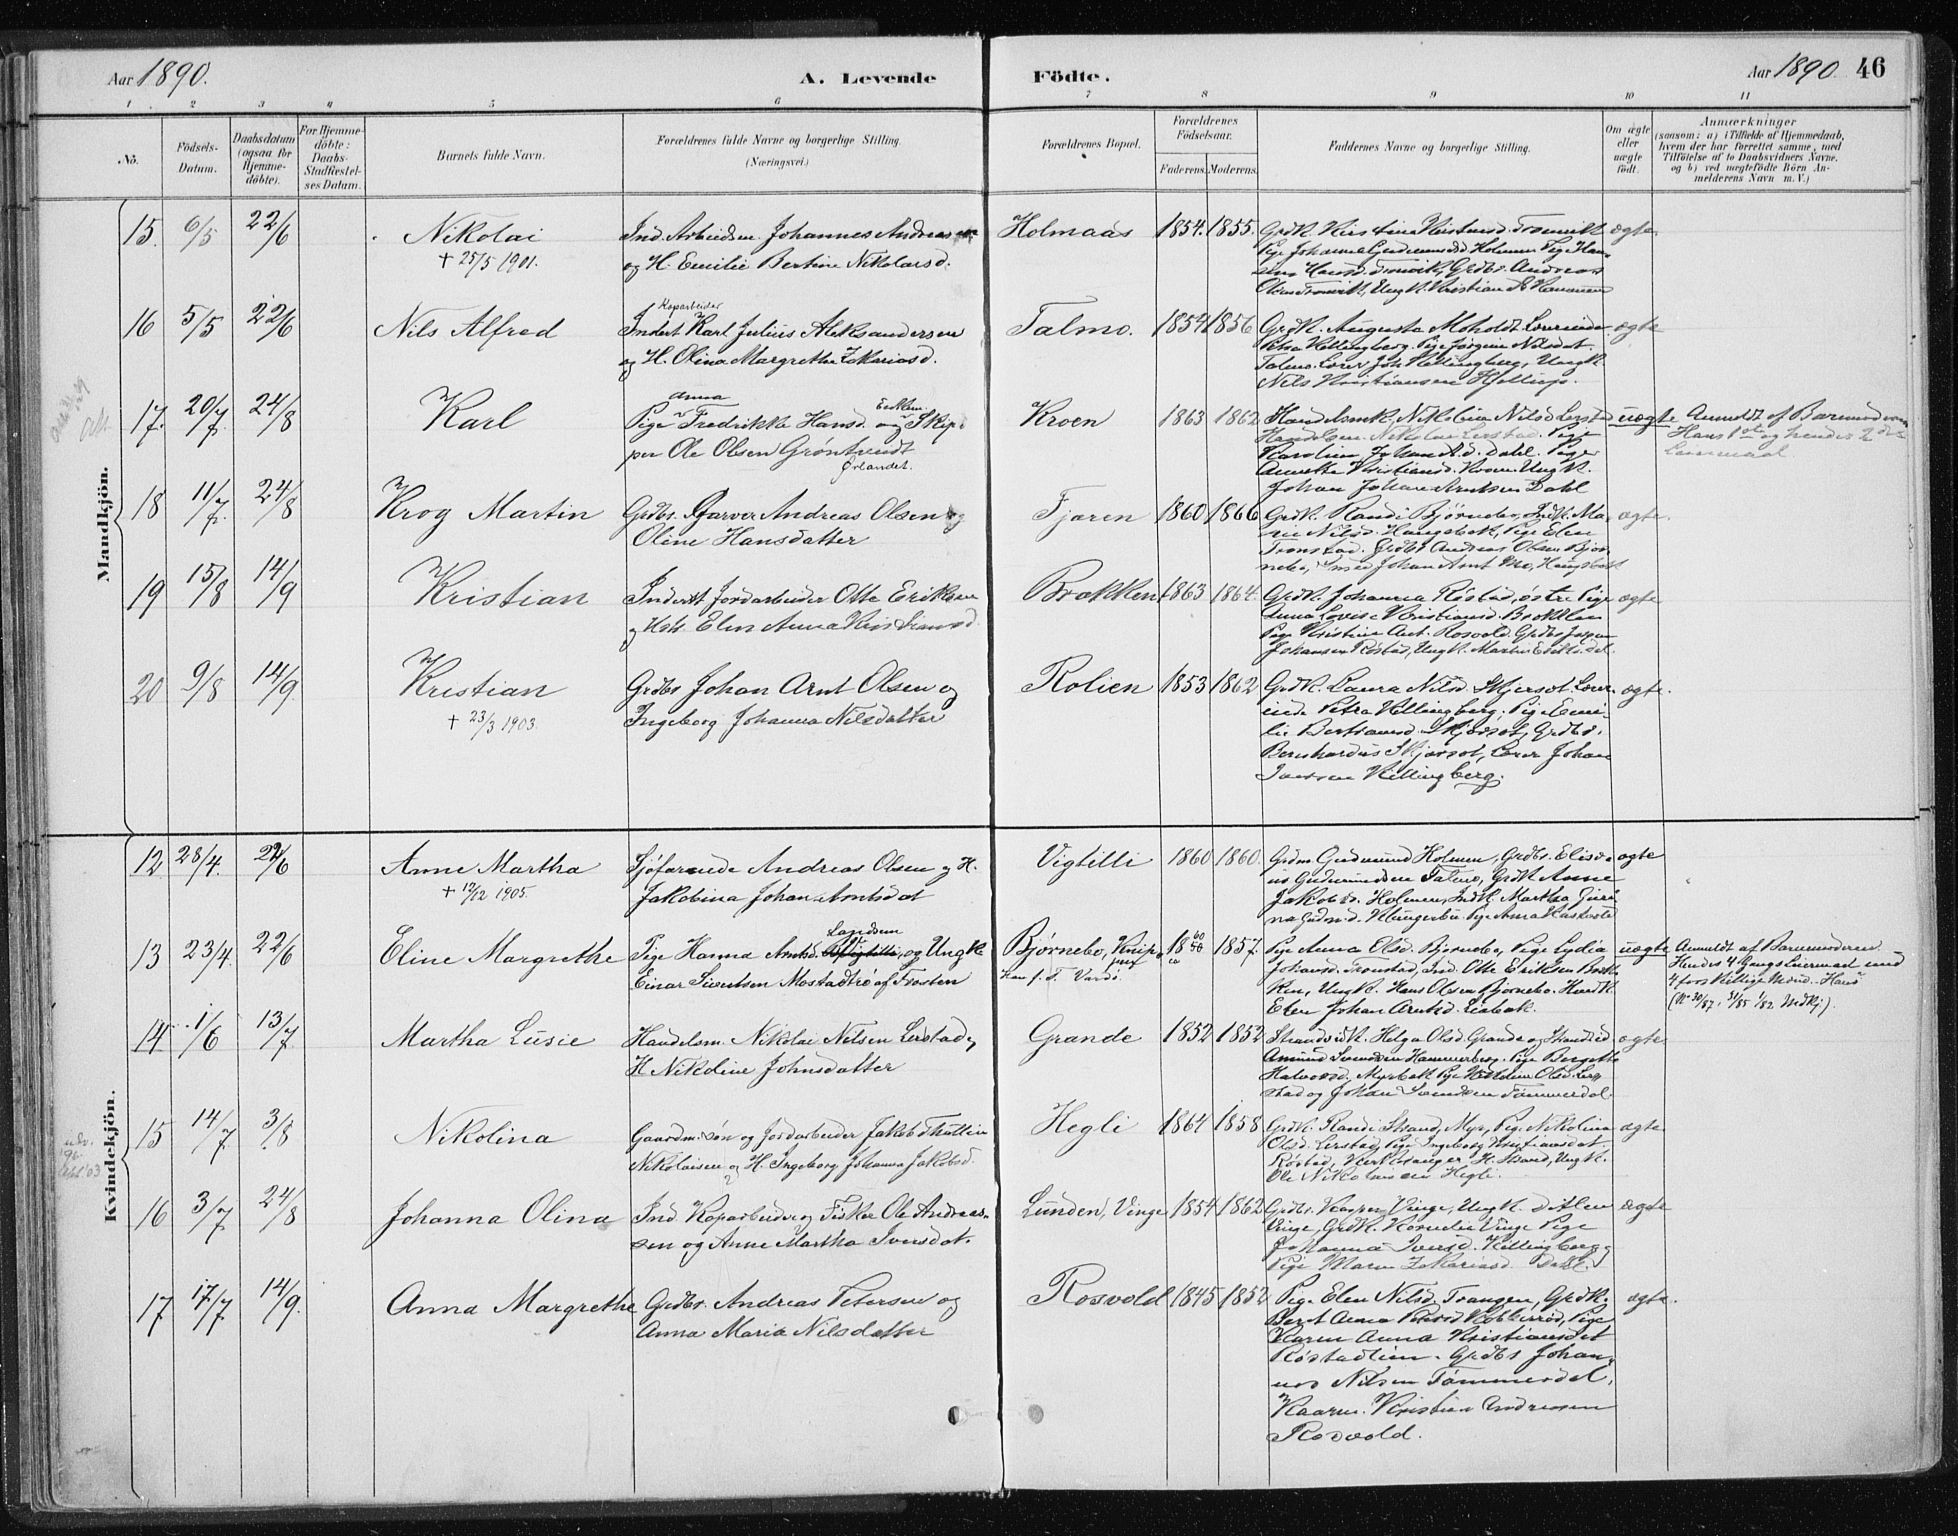 Aar 1890.
A. Levende
Födte.
Aar 1890. 46
1 2 3 4 5 6 7 8 9 10 11
No.
Födsels-
Datum.
Daabsdatum
(ogsaa for
Hjemme-
döbte).
For Hjemme-
döbte:
Daabs-
Stadfæstel-
ses Datum.
Barnets fulde Navn.
Forældrenes fulde Navne og borgerlige Stilling.
(Næringsvei.)
Forældrenes Bopæl.
Forældrenes
Födselsaar.
Faderens. Moderens.
Faddernes Navne og borgerlige Stilling.
Om ægte
eller
uægte
födt.
Anmærkninger
(saasom: a) i Tilfælde af Hjemmedaab,
hvem der har forrettet samme, med
Tilföielse af to Daabsvidners Navne,
og b) ved uægtefödte Börn An-
melderens Navn m. V.)
Mandkjön.
15. 6/5 22/6 Nikolai
+ 25/5 1901.
Ind. Arbeidsm. Johannes Andreassen
og H. Emilie Bertine Nikolaisd.
Holmaas 1854. 1855.
Grdk. Kristine Kristensd. Tronvik
Olsen Tronvik, Ungk. Kristian
ægte
16 5/5 22/6 Nils Alfred
Koparbeider
Inderst Karl Julius Aleksandersen
og H. Olina Margrethe Zakariasd.
Talmo. 1854 1856
Grdk. Augusta Moholdt Lærerinde
Petra Killingberg. Pige Jørgine Nilsdat.
Talmo. Lærer Joh Killingberg, Ungk.
Nils Kristiansen Hjellup.
ægte
17. 20/7 24/8 Karl
Anna
Pige Fredrikke Hansd. og Enkem. Skip-
per Ole Olsen Grøntvedt
Ørlandet.
Kroen 1863 1862
Handelsmk. Nikolina Nilsd Lerstad
Handelsm. Nikolai Lerstad. Pige
Karoline Johan A.d. Dahl. Pige
Anneka Kristiansd. Kroen. Ungk.
Johan Johan Arntsen Dahl
uægte
Anmeldt af Barnemoderen
Hans 1ste og hendes 2det
Leiermaal
18 11/7 24/8 Krog Martin
Grdbr. Garver Andreas Olsen og
Oline Hansdatter
Fjæren 1860 1866
Grdk. Randi Bjørnebo, Indk. Ma-
rie Nilsd. Haugsbak, Pige Elen
Tronstad. Grdbr Andreas Olsen Bjør-
nebo, Smed Johan Arnt Moe, Haugsbak
ægte.
19 15/8 14/9 Kristian
Inderst Jordarbeider Otte Eriksen
og Hst. Elen Anna Kristiansd.
Brækken 1863 1864.
Grdk. Johanna Røstad, østre Pige
Anna Lovise Kristiansd. Brækken
Pige Kristine Ant. Rosvold. Grdbr Jørgen
Johansen Røstad, Ungk. Martin
ægte
20 9/8 14/9 Kristian
+ 23/3 1903.
Grdbr Johan Arnt Olsen og
Ingeborg Johanna Nilsdatter
Rolien 1853 1862
Grdk. Laura Nilsd. Skjersot. Lærer-
inde Petra Killingberg. Pige Emi-
lie Skjærsot, Grdbr.
Bernhardus Skjærsot, Lærer Johan
Iversen Killingberg.
ægte.
Kvindekjön.
12 28/4. 22/6 Anne Martha
+ 12/12 1905.
Sjøfarende Andreas Olsen og H.
Jakobina Johan Arntsdat
Vigtilli 1860 1860.
Grdm. Gudmund Holmen, Grdbr. Elisæ-
us Gudmundsen Talmo, Grdk Anne
Jakobsd. Holmen Indk. Martha Juri-
ægte
13 23/4. 22/6 Eline Margrethe
Pige Hanna Arntsd. Vigtilli, og Ungk
Einar Sivertsen Mostadtrø af Frosten
Bjørnebo,
Han f. T. Vardö
1860 1857.
Pige Anna Olsd. Bjørnebo, Pige Lydia
Johansd. Tronstad, Ind. Otte Eriksen Bræk-
ken, Ungk. Hans Olsen Bjørnebo. Husk.
Elen Johan Arntsd. Liabak.
uægte
Anmeldt af Barnemoderen
Hendes 4 Gangs Leiermaal med
4 forskjellige Mænd. Hans
14 1/6 13/7 Martha Lusie
Handelsm. Nikolai Nilsen Lerstad og
H Nikoline Johnsdatter
Grande 1852 1852
Strandsidk. Helga Olsd Grande og Strandsid
Amund Svendsen Hammerberg. Pige Bergette
Halvorsd. Myrbak Pige Olsd. Ler-
stad og Johan Svendsen Tømmerdal
ægte
15 14/7 3/8 Nikolina
Gaardm. søn og Jordarbeider Jakob
Nikolaisen og H. Ingeborg Johanna Jakobsd.
Hegli 1864 1858
Grdk. Randi Strand, Myr, Pige Nikolina
Olsd. Lerstad, Pige Ingeborg Kristiansdat
Røstad, Kirkesanger H. Strand, Ungk.
Ole Nikolaisen Hegli.
ægte
16 3/7 24/8 Johanna Olina
Ind. Koparbeider og Fisker Ole Andreas-
sen og Anne Martha Iversdat.
Lunden, Vinge 1854 1862
Grdbr. Kasper Vinge, Ungk. Ditlev
Vinge, Grdk. Kornelia Vinge Pige
Johanna Iversd. Killingberg og
Pige Maren Zakariasd. Dahl.
ægte
17 17/7 14/9. Anna Margrethe
Grdbr. Andreas Petersen og
Anna Maria Nilsdatter
Rosvold 1845 1852
Pige Elen Nilsd Trangen, Grdk.
Berit Anna Pige
Karen Anna Kristiansdat
Røstadlien. Grdbr Johan-
nes Nilsen Tømmerdal,
Kaarm. Kristian Andreassen
Rosvold.
ægte.